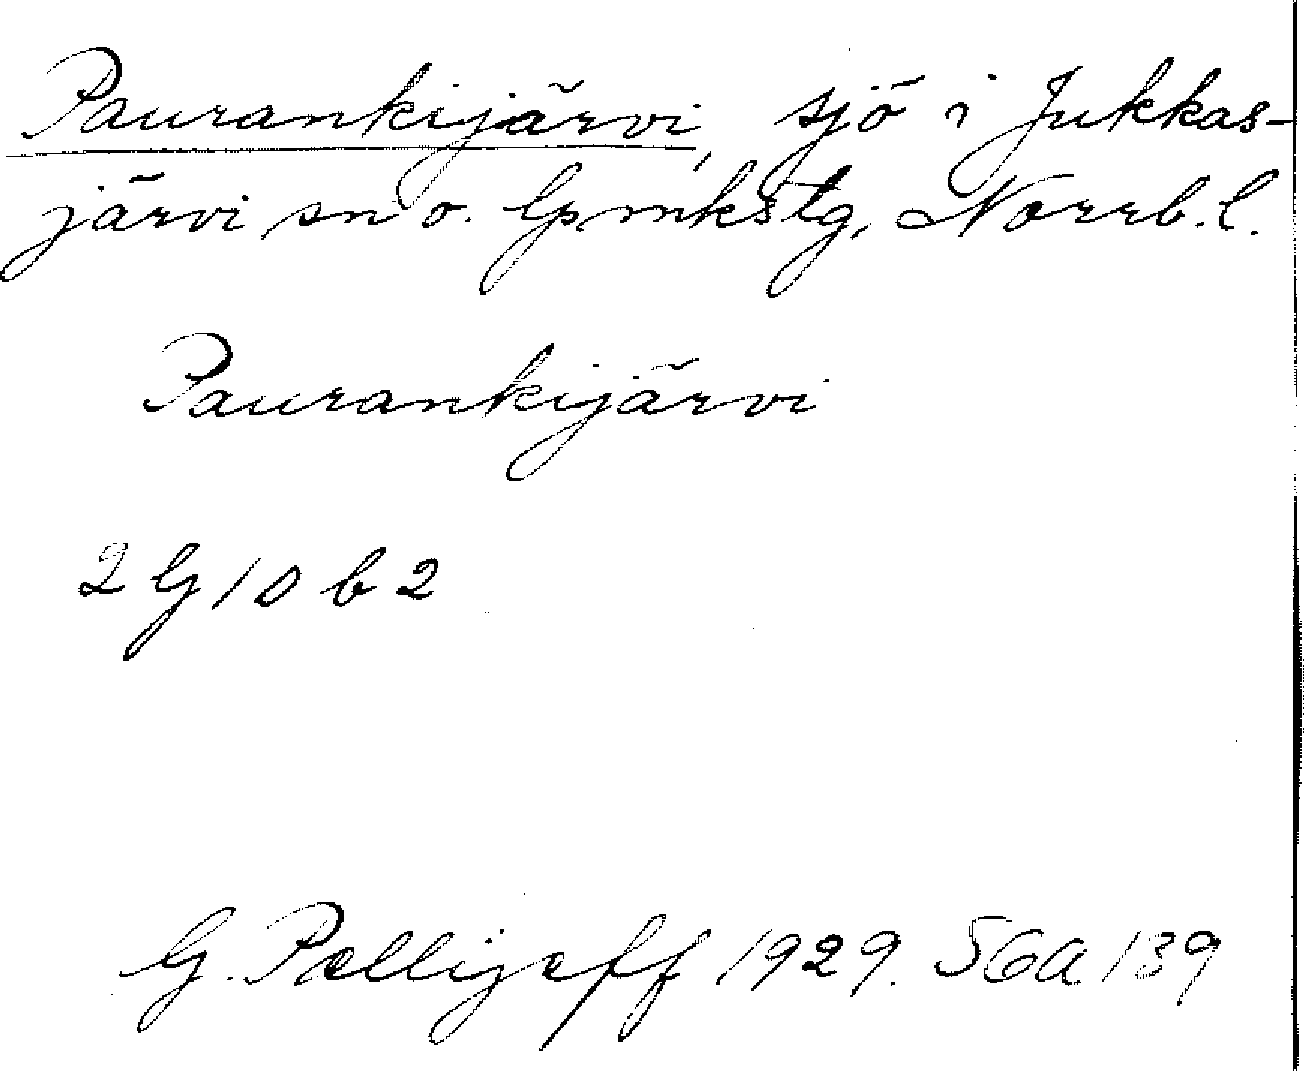 Paurankijärvi, sjö i Jukkas-
järvi sn o. lpmkstg, Norrb. l.
Paurankijärvi
2 G 10 b 2
G. Pellijeff 1929. 56a 139